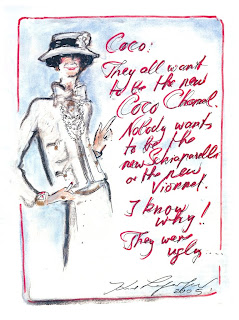 Coco:
They all want
to be the new
Coco Chanel.
Nobody wants
to be the
new Schiaparelli
or the new
Vionnet.
I know
why!!
They were
ugly....
2005